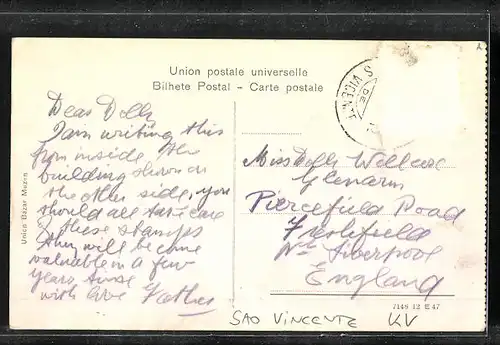 Union postale universelle
Bilhete Postal – Carte postale
S VICENT
DE
Dear Dolly
I am writing this
from inside the
building shown on
the other side, you
should all take care
& these stamps
they will become
valuable in a few
years time
with love Father
Miss Dolly
Glenarm
Piercefield Road
Freshfield
Nr Liverpool
England
Unico Bazar
7146 12
SAO VINCENTE KV